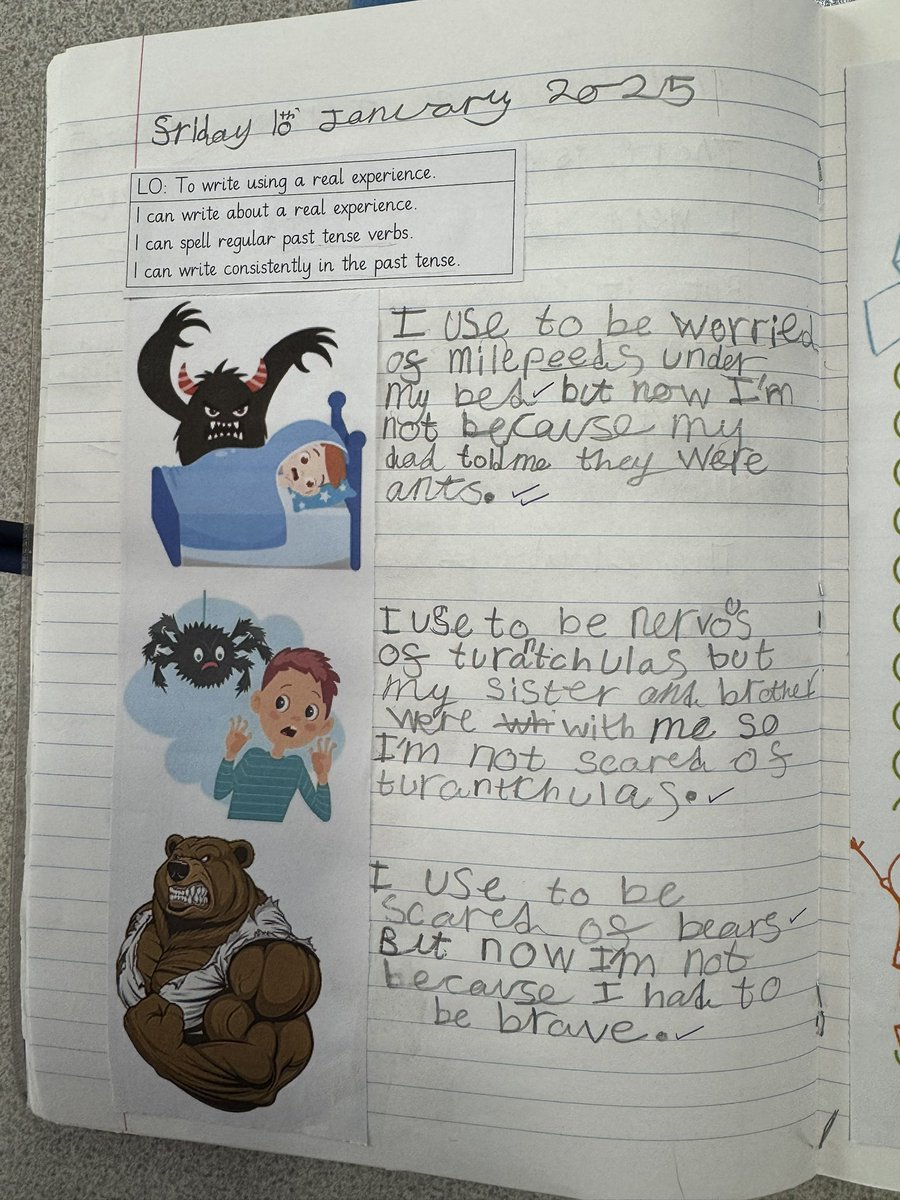 Friday 10th January 2025
LO: To write using a real experience.
I can write about a real experience.
I can spell regular past tense verbs.
I can write consistently in the past tense.
I use to be worried
of milepeeds under
my bed but now I'm
not because my
dad told me they were
ants.
I use to be nervous
of turantchulas but
my sister and brother
were wh with me so
I'm not scared of
turantchulas.
I use to be
scared of bears
But now I'm not
because I had to
be brave.